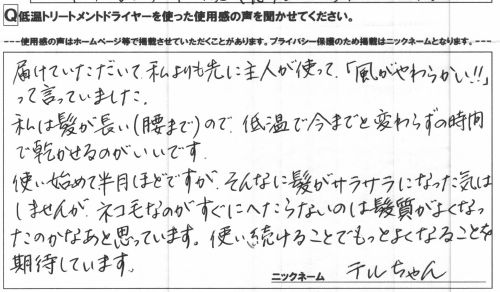 Q低温トリートメントドライヤーを使った使用感の声を聞かせてください。
----使用感の声はホームページ等で掲載させていただくことがあります。プライバシー保護のため掲載はニックネームとなります。---
届けていただいて、私よりも先に主人が使って、「風がやわらかい!!」
って言っていました。
私は髪が長い(腰まで)ので、低温で今までと変わらずの時間
で乾かせるのがいいです。
使い始めて半月ほどですが、そんなに髪がサラサラになった気は
しませんが、ネコ毛なのがすぐにへたらないのは髪質がよくなっ
たのかなあと思っています。使い続けることでもっとよくなることを
期待しています。
ニックネーム テルちゃん